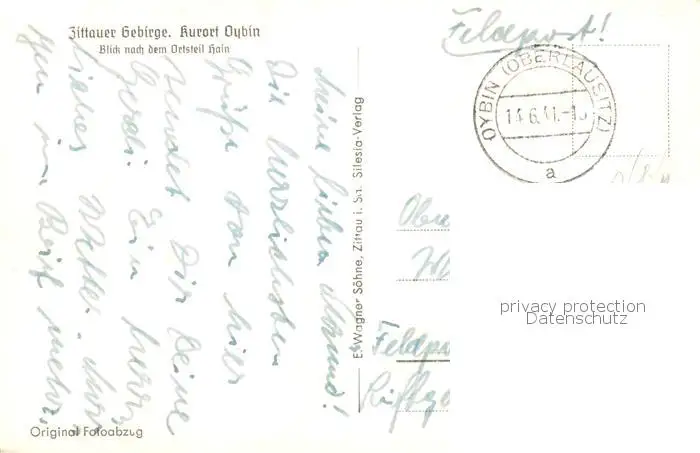 Zittauer Gebirge. Kurort Oybin
Blick nach dem Ortsteil Hain
Feldpost!
OYBIN (OBERLAUSITZ)
14.6.41.-1
a
Meine lieben
Die herzlichsten
Grüße von hier
sendet Dir Deine
Gerdi. Ein herr-
liches Wetter.
gen im Brief mehr.
E. Wagner Söhne, Zittau i. Sa. Silesia-Verlag
Ob
Feldpo
Original Fotoabzug
privacy protection
Datenschutz